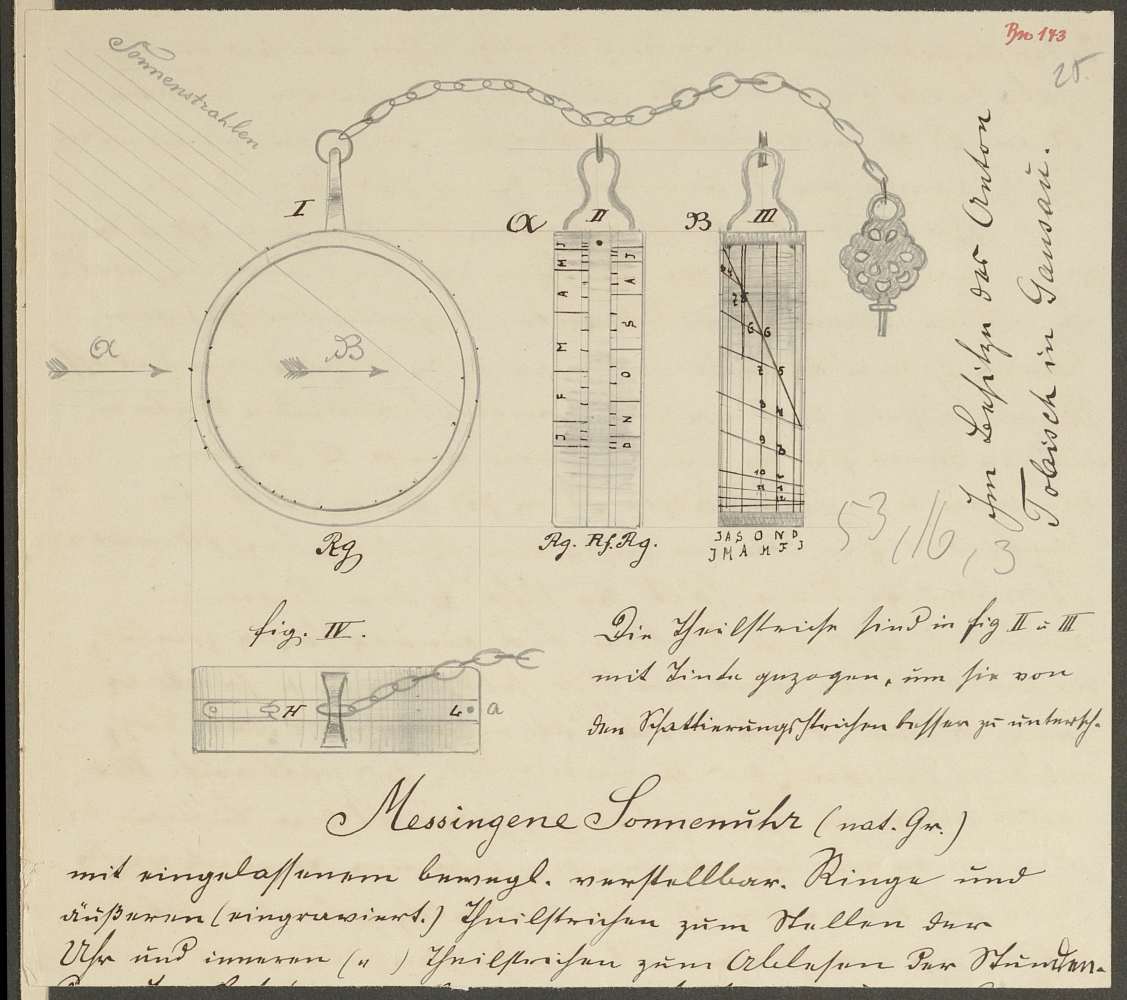 Bn 143
25.
Sonnenstrahlen
I
α
B
Rg
α
II
J
M
A
M
F
J
J
A
S
O
N
D
Rg. Rf. Rg.
B
III
4
8
7 5
6 6
5
8 4
9 3
10 2
J A S O N D
J M A M F J
Im Besitze des Anton
Tobisch in Gansau.
53,16,3
fig. IV.
H
L
a
Die Theilstriche sind in fig II u III
mit Tinte gezogen, um sie von
den Schattierungsstrichen besser zu untersch.
Messingene Sonnenuhr (nat. Gr.)
mit eingelassenem bewegl. verstellbar. Ringe und
äußeren (eingraviert.) Theilstrichen zum Stellen der
Uhr und inneren ( „ ) Theilstrichen zum Ablesen der Stunden-